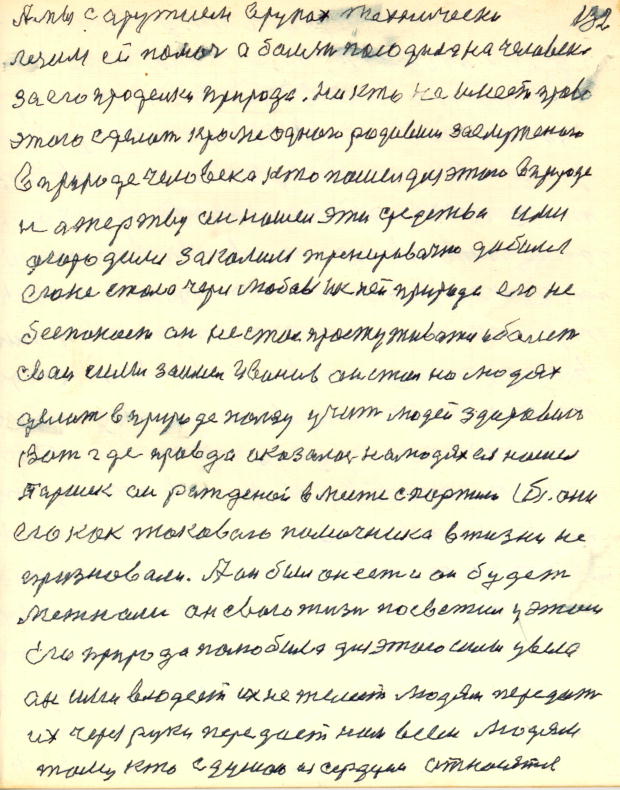 132
А мы с аружием в руках технически
лезим ей помоч а болячи посодила на человека
за его проделки природа. Никто не имеет право
этого сделат кроме одного родивши заслуженого
в природе человека кто пошел для этого в природе
на жертву он нашел эти средства ими
огородили закалили тренировачно добился
его не стало через любов к ней природа его не
беспокоет он не стал простуживатся и болет
свои силы Иванов он стал на людях
делат в природе ползу учит людей здоровию
Вот где правда оказалас на людях ея нашел
Паршек он рожденой в месте они
его как такового помочника в жизни не
призновали. А он был он ест и он будет
он своего жизн посветил у этом
Его природа полюбила для этого силы увела
он ими владеет их не желеет людям передат
их через руки передает нам всем людям
тому кто с душою и сердцем относится